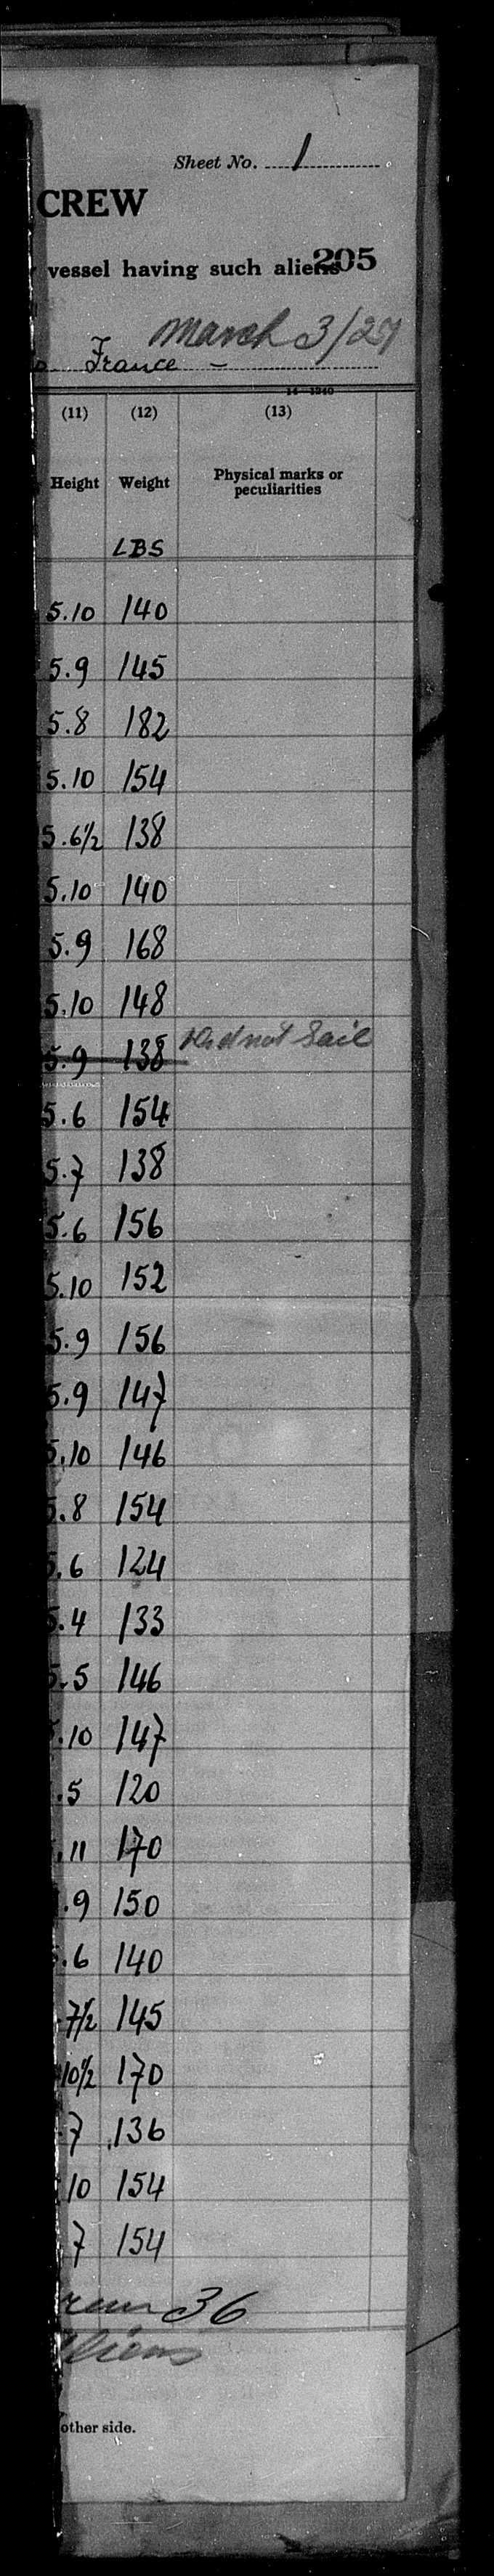 Sheet No. 1
CREW
vessel having such aliens 205
March 3/27
France -
(11) (12) (13)
Height Weight Physical marks or
peculiarities
LBS
5.10 140
5.9 145
5.8 182
5.10 154
5.6½ 138
5.10 140
5.9 168
5.10 148
5.9 138 Did not Sail
5.6 154
5.7 138
5.6 156
5.10 152
5.9 156
5.9 147
5.10 146
5.8 154
5.6 124
5.4 133
5.5 146
.10 147
.5 120
.11 170
.9 150
.6 140
.7½ 145
10½ 170
.7 136
10 154
7 154
36
Aliens
other side.